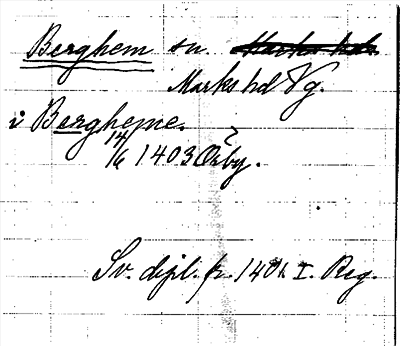 Berghem sn
Marks hd Vg.
i Bergheme.
14/6 1403 Örby.
Sv. dipl. fr. 1401 I. Reg.